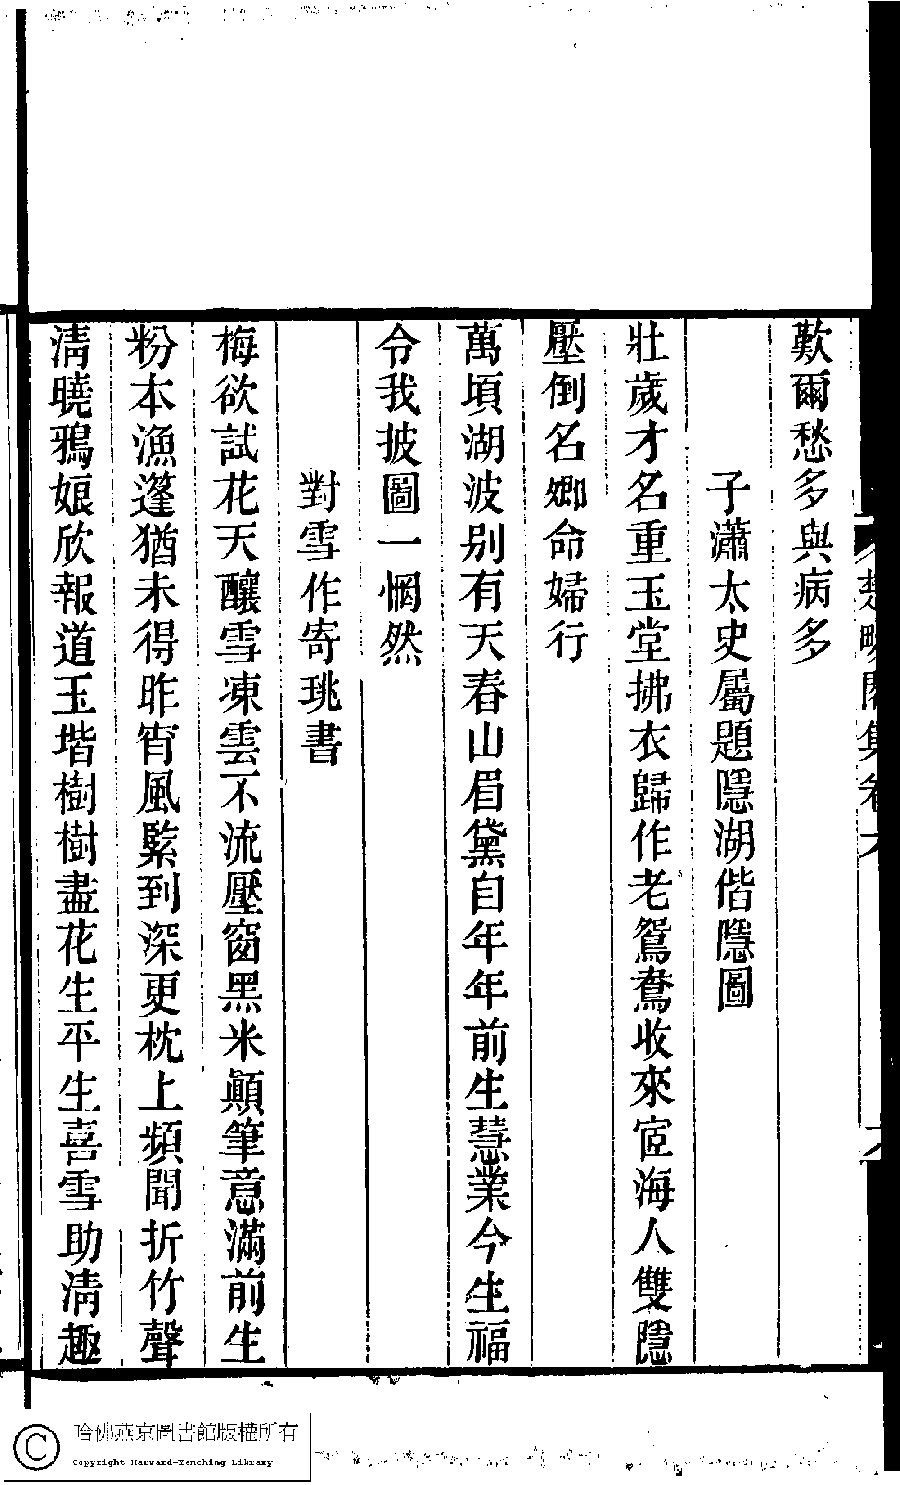 歎爾愁多與病多
子瀟太史屬題隱湖偕隱圖
壯歲才名重玉堂拂衣歸作老鴛鴦收來宦海人雙隱
壓倒名卿命婦行
萬頃湖波別有天春山眉黛自年年前生慧業今生福
令我披圖一惘然
對雪作寄珧書
梅欲試花天釀雪凍雲不流壓窗黑米顚筆意滿前生
粉本漁篷猶未得昨宵風緊到深更枕上頻聞折竹聲
淸曉鴉娘欣報道玉堦樹樹盡花生平生喜雪助淸趣
哈佛燕京圖書館版權所有
Copyright Harvard-Yenching Library